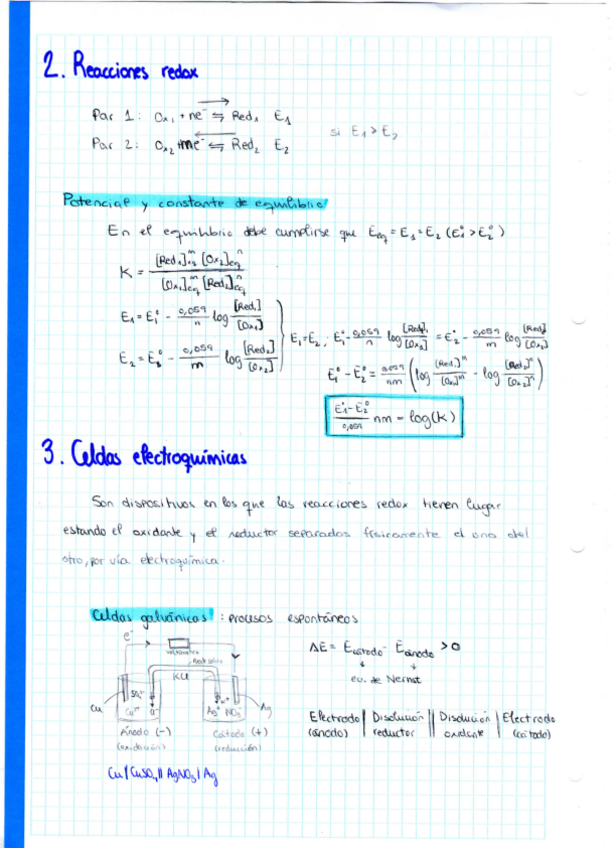 2. Reacciones redox
Par 1: Ox₁ + ne⁻ ⇆ Red₁ E₁
Par 2: Ox₂ + me⁻ ⇆ Red₂ E₂
si E₁ > E₂
Potencial y constante de equilibrio
En el equilibrio debe cumplirse que Eeq = E₁ = E₂ (E₁° > E₂°)
K = [Red₁]eq^m [Ox₂]eq^n / [Ox₁]eq^m [Red₂]eq^n
E₁ = E₁° - 0,059/n log [Red₁]/[Ox₁]
E₂ = E₂° - 0,059/m log [Red₂]/[Ox₂]
E₁ = E₂, E₁° - 0,059/n log [Red₁]/[Ox₁] = E₂° - 0,059/m log [Red₂]/[Ox₂]
E₁° - E₂° = 0,059/nm (log [Red₁]^m/[Ox₁]^m - log [Red₂]^n/[Ox₂]^n)
E₁° - E₂°/0,059 nm = log(K)
3. Celdas electroquímicas
Son dispositivos en los que las reacciones redox tienen lugar
estando el oxidante y el reductor separados físicamente el uno del
otro, por vía electroquímica.
Celdas galvánicas: procesos espontáneos
e⁻
voltímetro
Puente salino
KCl
Cu
SO₄²⁻
Cu²⁺
Cl⁻
K⁺
Ag⁺ NO₃⁻
Ag
Ánodo (-)
(oxidación)
Cátodo (+)
(reducción)
Cu | CuSO₄ || AgNO₃ | Ag
ΔE = Ecátodo - Eánodo > 0
ec. de Nernst
Electrodo | Disolución || Disolución | Electrodo
(ánodo) | reductor || oxidante | (cátodo)